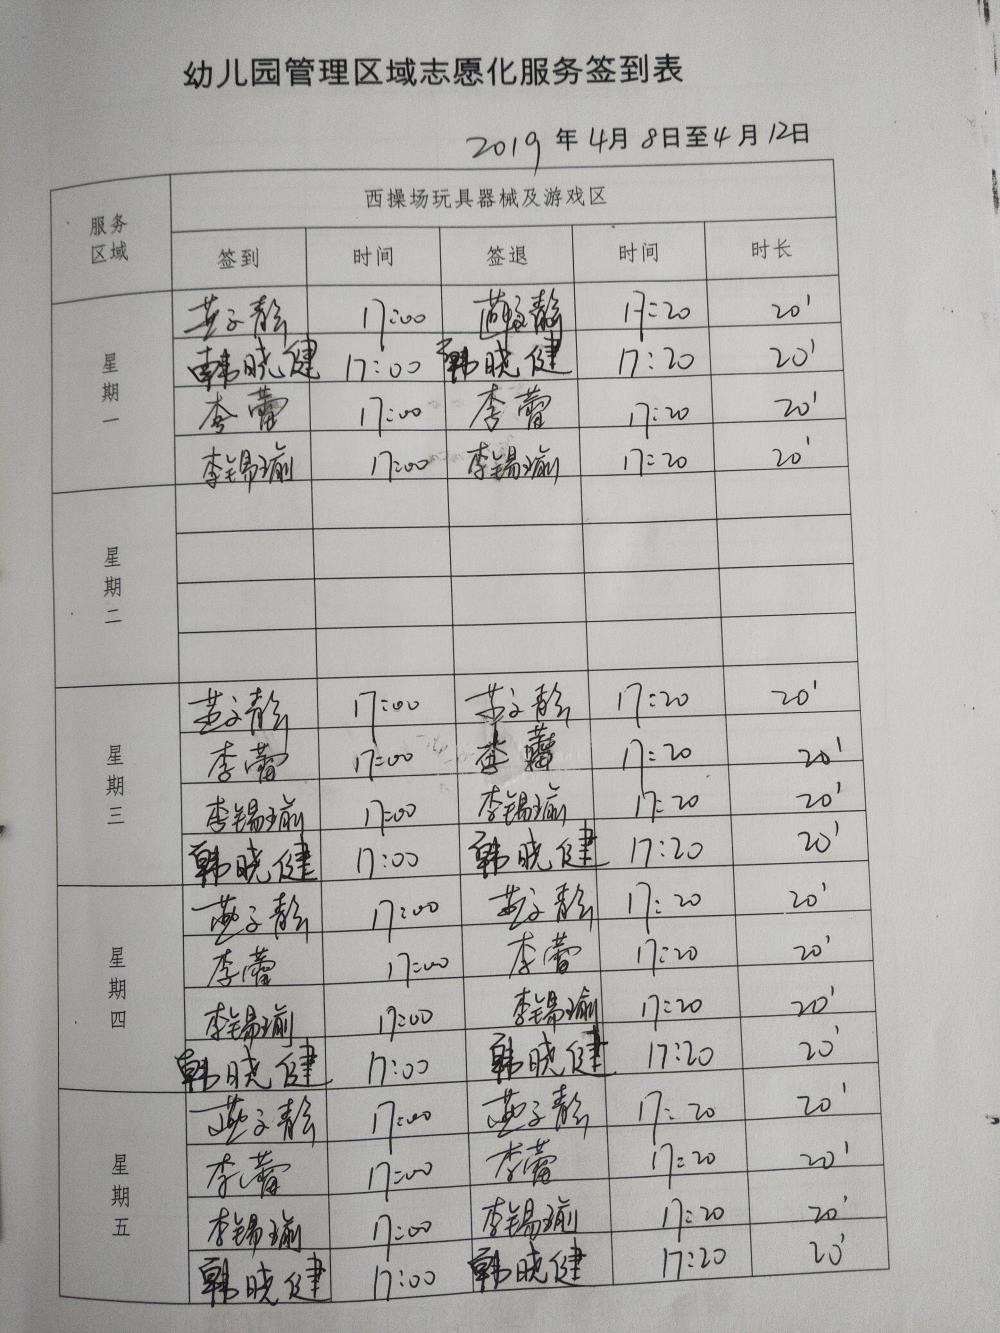 幼儿园管理区域志愿化服务签到表
2019年4月8日至4月12日
服务区域 西操场玩具器械及游戏区
签到 时间 签退 时间 时长
星期一
17:00 17:20 20'
韩晓健 17:00 韩晓健 17:20 20'
李蕾 17:00 李蕾 17:20 20'
李锡瑜 17:00 李锡瑜 17:20 20'
星期二
星期三
17:00 17:20 20'
李蕾 17:00 李蕾 17:20 20'
李锡瑜 17:00 李锡瑜 17:20 20'
韩晓健 17:00 韩晓健 17:20 20'
星期四
17:00 17:20 20'
李蕾 17:00 李蕾 17:20 20'
李锡瑜 17:00 李锡瑜 17:20 20'
韩晓健 17:00 韩晓健 17:20 20'
星期五
17:00 17:20 20'
李蕾 17:00 李蕾 17:20 20'
李锡瑜 17:00 李锡瑜 17:20 20'
韩晓健 17:00 韩晓健 17:20 20'